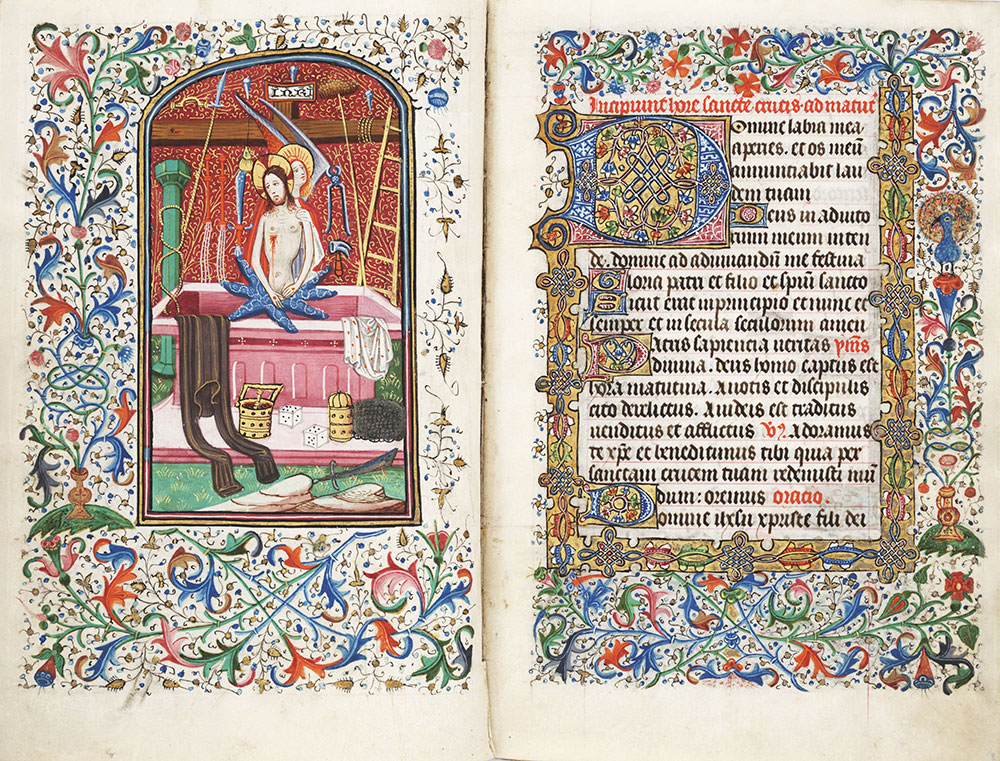 INRI
Incipiunt hore sancte crucis ad matut
Domine labia mea
aperies. et os meū
annunciabit lau
dem tuam
Deus in adiuto
rium meum inten
de. domine ad adiuuandū me festina
Gloria patri et filio et spūi sancto
Sicut erat in principio et nunc et
semper et in secula seculorum amen
Patris sapiencia veritas ymn̄s
diuina. deus homo captus est
hora matutina. A notis et discipulis
cito derelictus. A iudeis est traditus
uenditus et afflictus ℣ Adoramus
te xp̄e et benedicimus tibi quia per
sanctam crucem tuam redemisti mū
dum: oremus oracio.
Domine ihesu xpriste fili dei